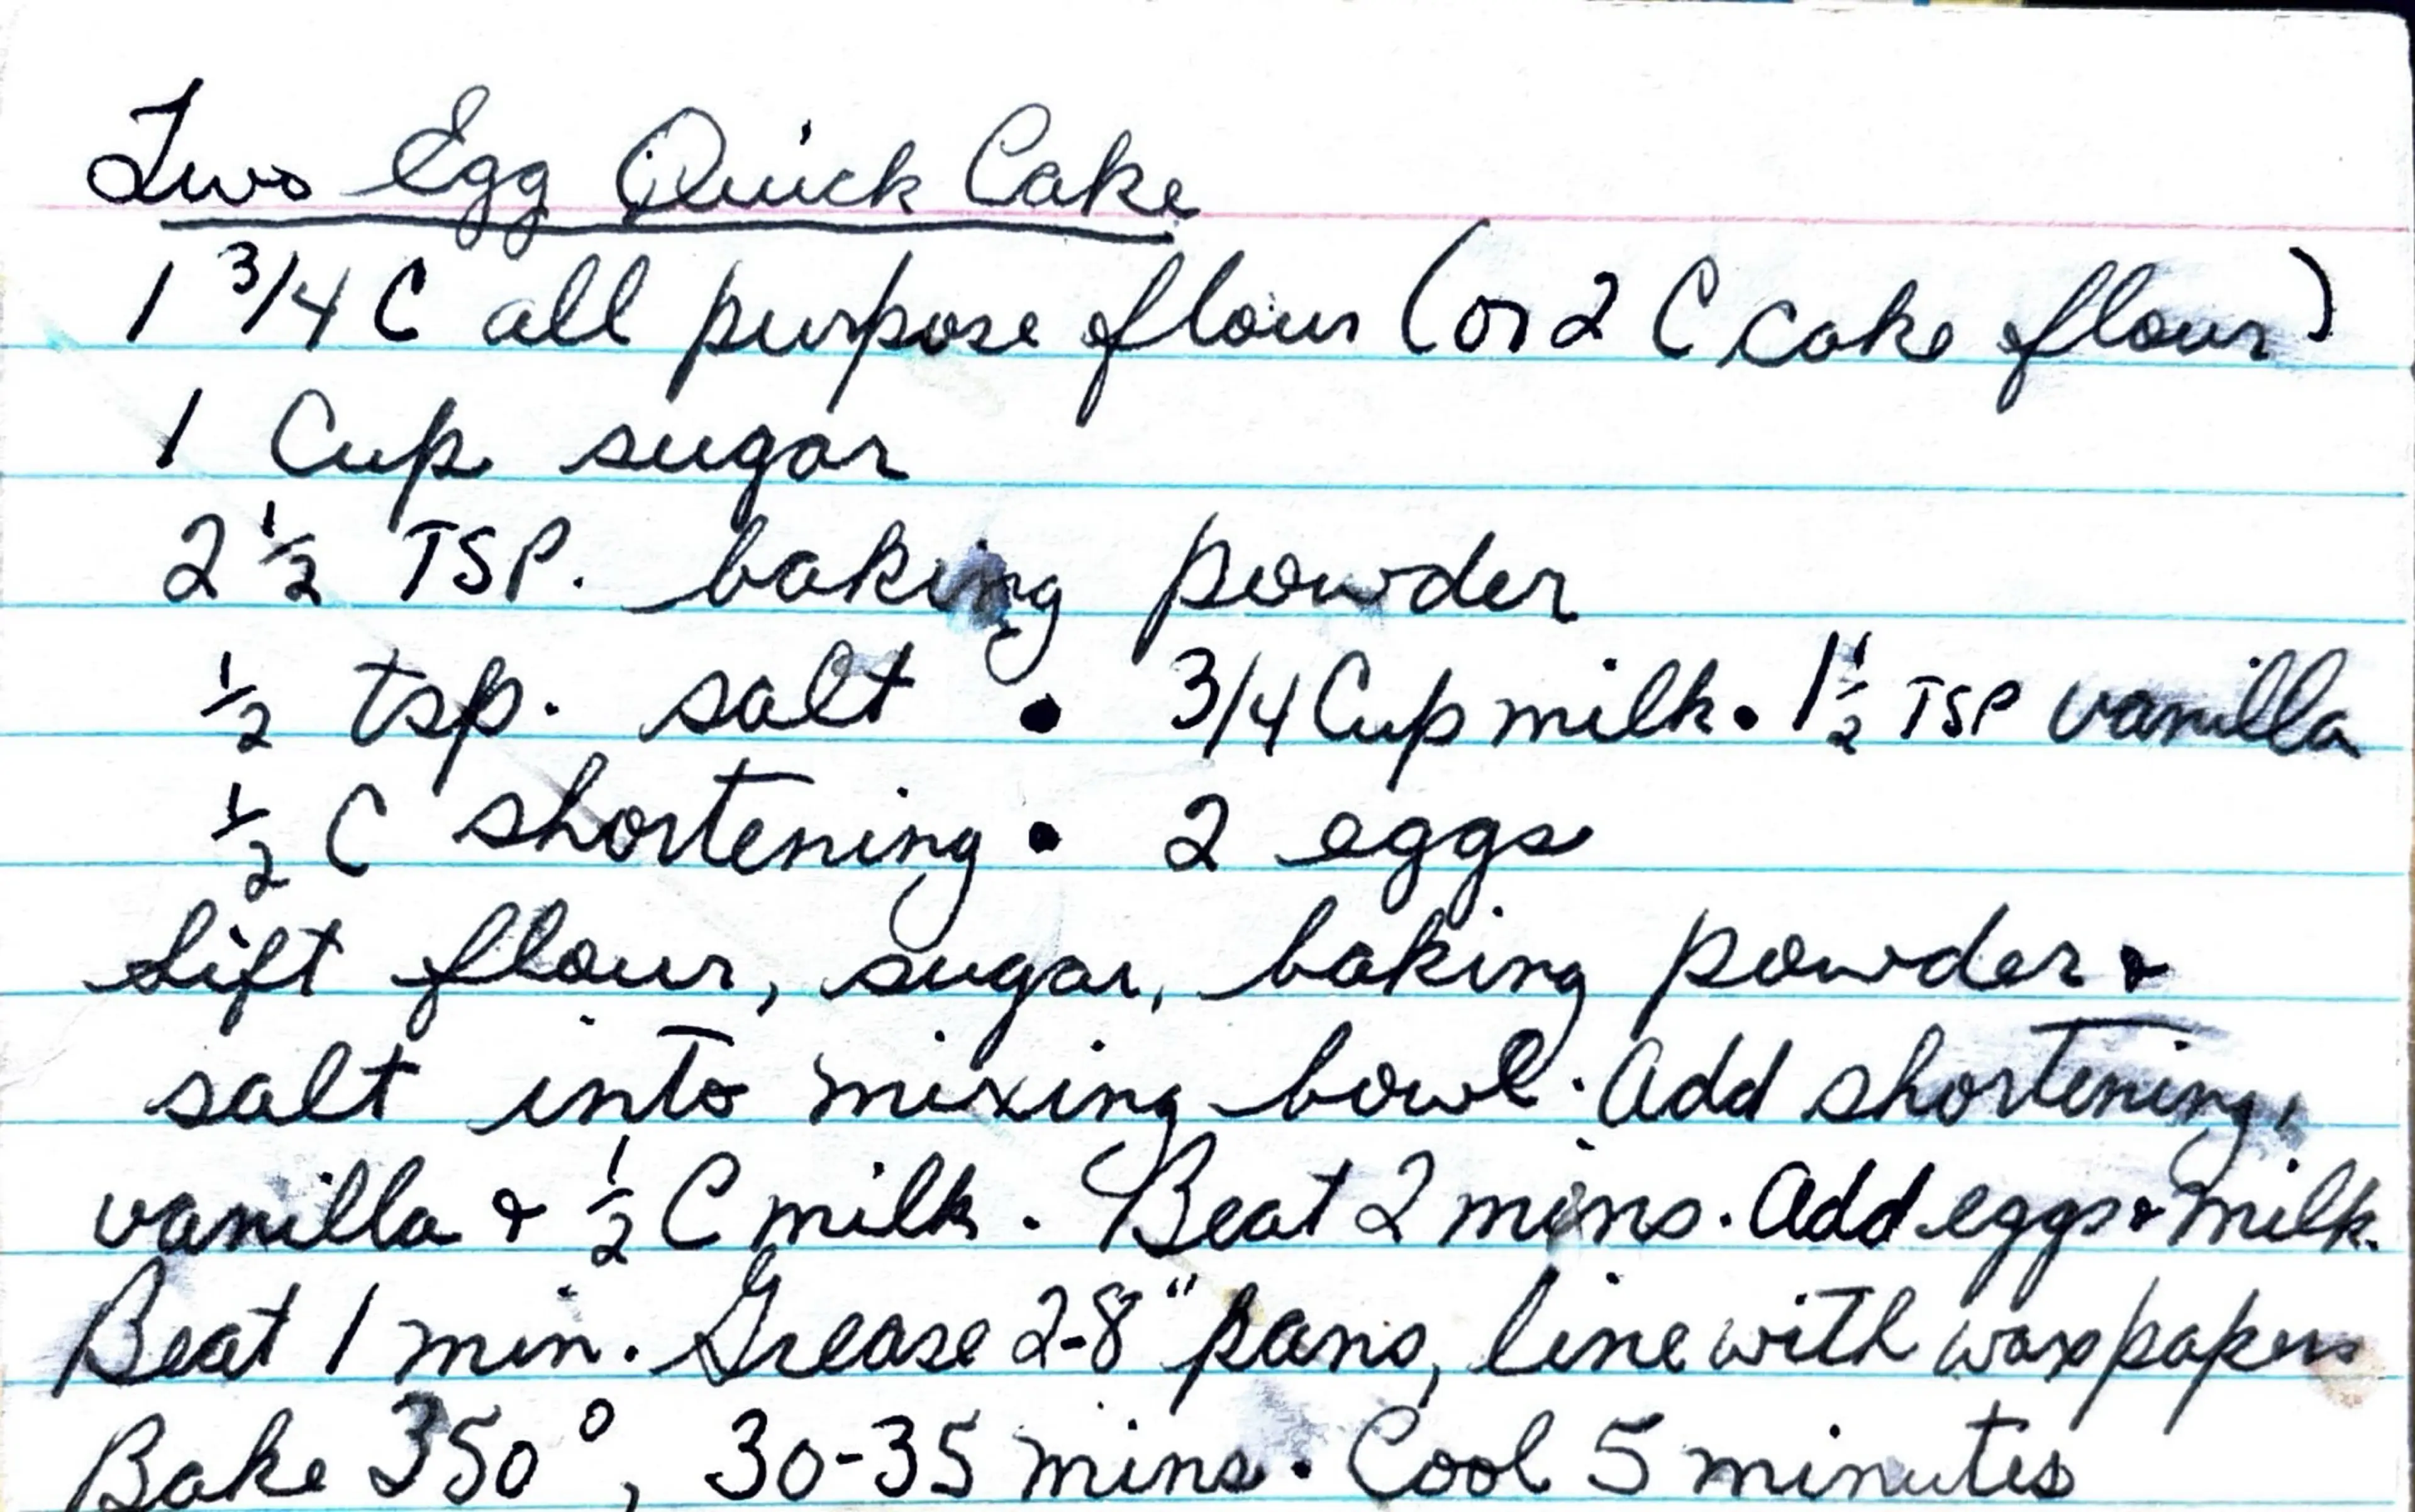 Two Egg Quick Cake
1 3/4 C all purpose flour (or 2 C cake flour)
1 Cup sugar
2 1/2 TSP. baking powder
1/2 tsp. salt • 3/4 Cup milk • 1 1/2 TSP vanilla
1/2 C shortening • 2 eggs
Sift flour, sugar, baking powder &
salt into mixing bowl. Add shortening,
vanilla & 1/2 C milk. Beat 2 mins. Add eggs & milk.
Beat 1 min. Grease 2-8" pans, line with wax papers
Bake 350°, 30-35 mins. Cool 5 minutes